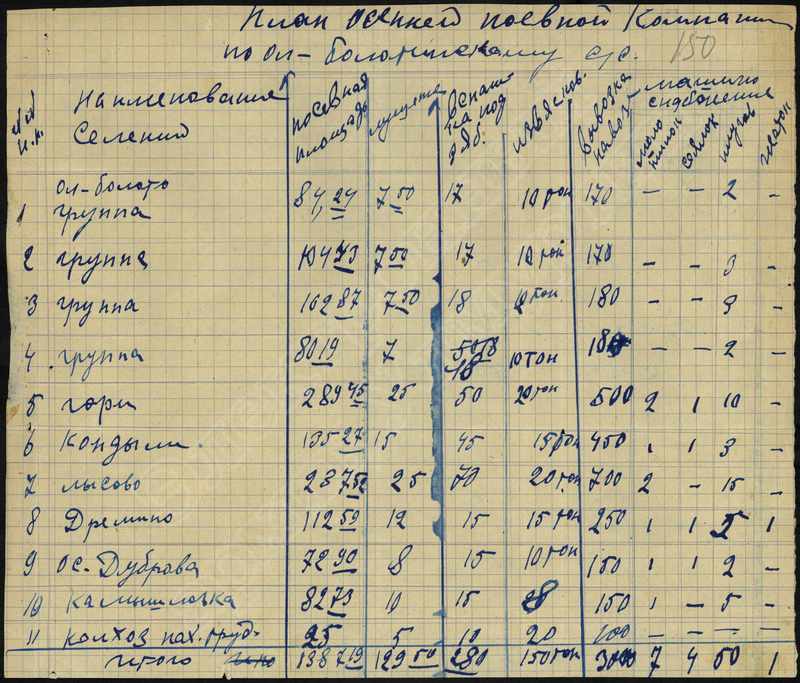 План осенней посевной Компании
по ол-болотинскому с/с. 150
№№ п.п. Наименование Селений посевная площадь вспаш-ка под зяб. известков. вывозка навоз машино снабжение моло тилок сеялок плугов
1 ол-болото группа 84,24 7 50 17 10 тон 170 — — 2 -
2 группа 104 73 7 50 17 10 тон 170 — — 3 -
3 группа 102 87 7 50 18 10 тон. 180 — — 3 -
4 группа 80 19 7 18 10 тон 180 — — 2 -
5 гори 289 45 25 50 20 тон 500 2 1 10 -
6 Кондыли. 135 27 15 45 15 тон 450 1 1 3 -
7 лысово 237 52 25 70 20 тон 700 2 - 15 -
8 Дремино 112 59 12 15 15 тон 250 1 1 5 1
9 ос. Дуброва 72 90 8 15 10 тон 150 1 1 2 -
10 камышловка 82 73 10 15 150 1 - 5 -
11 колхоз пах. труд- 25 5 10 20 100 — — — —
итого 1387 19 129 50 280 150 тон 3000 7 4 50 1